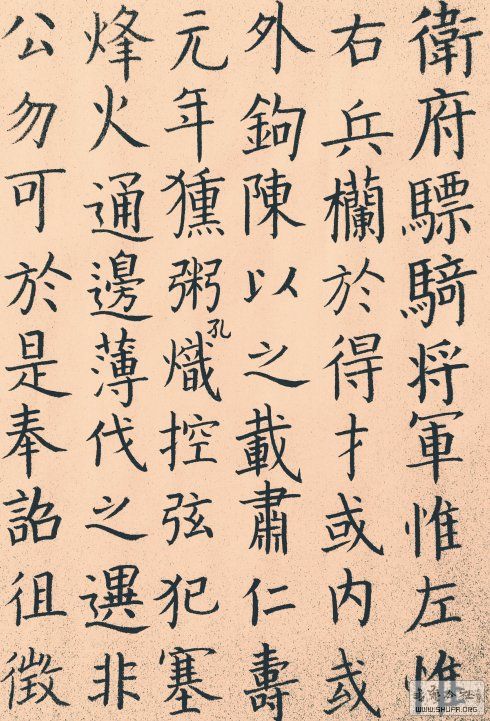 衛府驃騎将軍惟左惟
右兵欄於得才或内或
外鉤陳以之載肅仁壽
元年獯粥孔熾控弦犯塞
烽火通邊薄伐之選非
公勿可於是奉詔徂徵
WWW.SHUFA.ORG